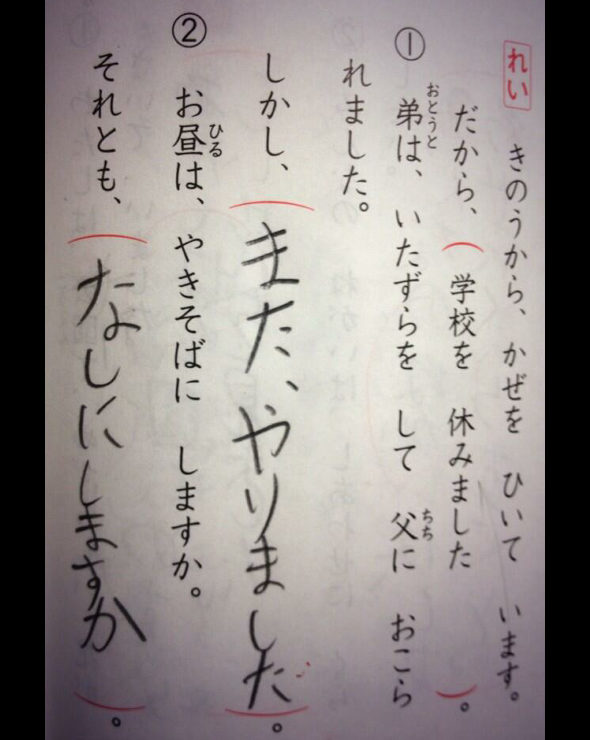 れい
きのうから、かぜを ひいて います。
だから、( 学校を 休みました )。
① 弟は、いたずらを して 父に おこら
れました。
しかし、(また、やりました。)。
② お昼は、やきそばに しますか。
それとも、(なしにしますか)。